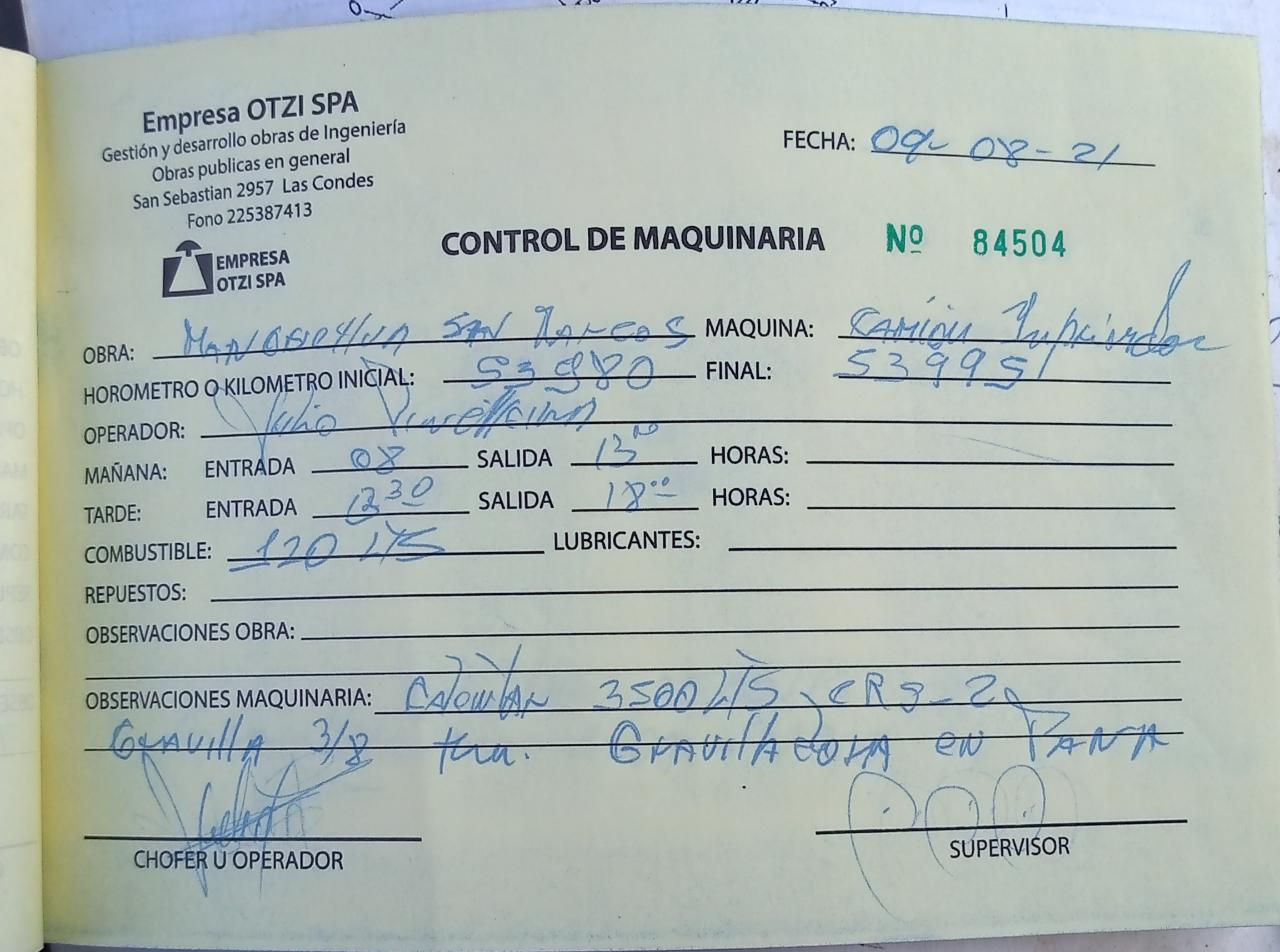 Empresa OTZI SPA
Gestión y desarrollo obras de Ingeniería
Obras publicas en general
San Sebastian 2957 Las Condes
Fono 225387413
EMPRESA
OTZI SPA
FECHA: 09-08-21
CONTROL DE MAQUINARIA Nº 84504
OBRA: SAN MARCOS MAQUINA: CAMION
HOROMETRO O KILOMETRO INICIAL: 53980 FINAL: 53995
OPERADOR: Julio
MAÑANA: ENTRADA 08 SALIDA 13 HORAS:
TARDE: ENTRADA SALIDA 18 HORAS:
COMBUSTIBLE: 120 LTS LUBRICANTES:
REPUESTOS:
OBSERVACIONES OBRA:
OBSERVACIONES MAQUINARIA: 3500 LTS CRS-2
GRAVILLA 3/8 GRAVILLADORA EN PANA
CHOFER U OPERADOR
SUPERVISOR